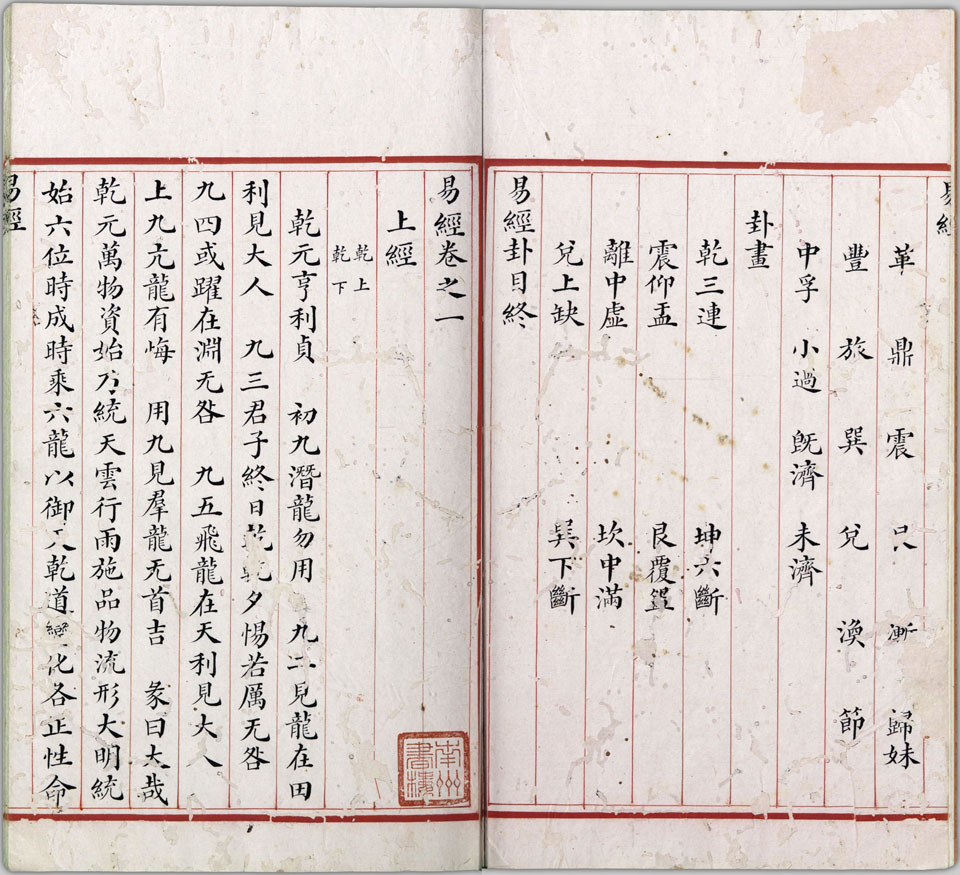 易經
革 鼎 震 艮 漸 歸妹
豐 旅 巽 兌 渙 節
中孚 小過 既濟 未濟
卦畫
乾三連 坤六斷
震仰盂 艮覆盌
離中虛 坎中滿
兌上缺 巽下斷
易經卦目終
易經卷之一
上經
乾上
乾下
乾元亨利貞 初九潛龍勿用 九二見龍在田
利見大人 九三君子終日乾乾夕惕若厲无咎
九四或躍在淵无咎 九五飛龍在天利見大人
上九亢龍有悔 用九見羣龍无首吉 彖曰大哉
乾元萬物資始乃統天雲行雨施品物流形大明統
始六位時成時乘六龍以御天乾道變化各正性命
易經
南州書樓